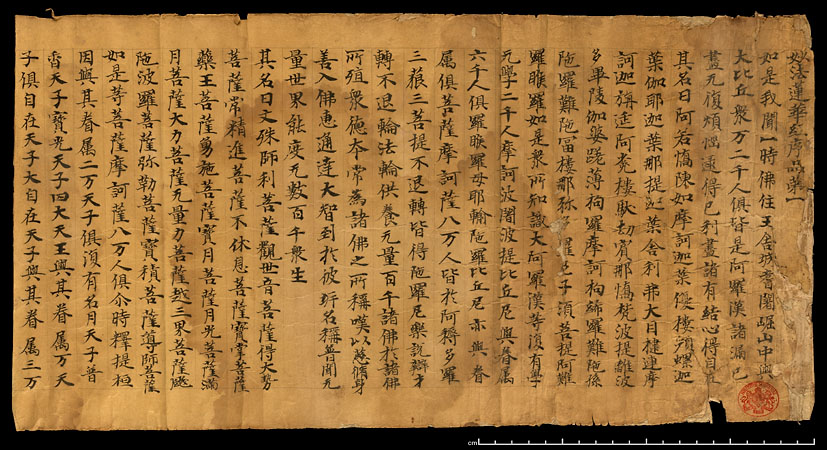 妙法蓮華經序品第一
如是我聞一時佛住王舍城耆闍崛山中與
大比丘眾万二千人俱皆是阿羅漢諸漏已
盡无復煩惱逮得己利盡諸有結心得自在
其名曰阿若憍陳如摩訶迦葉優樓頻螺迦
葉伽耶迦葉那提迦葉舍利弗大目揵連摩
訶迦旃延阿㝹樓馱劫賓那憍梵波提離波
多畢陵伽婆蹉薄拘羅摩訶拘絺羅難陁孫
陁羅難陁富樓那弥多羅尼子須菩提阿難
羅睺羅如是眾所知識大阿羅漢等復有學
无學二千人摩訶波闍波提比丘尼與眷属
六千人俱羅睺羅母耶輸陁羅比丘尼亦與眷
属俱菩薩摩訶薩八万人皆於阿耨多羅
三藐三菩提不退轉皆得陁羅尼樂說辯才
轉不退轉法輪供養无量百千諸佛於諸佛
所殖眾德本常為諸佛之所稱嘆以慈脩身
善入佛惠通達大智到於彼岸名稱普聞无
量世界能度无數百千眾生
其名曰文殊師利菩薩觀世音菩薩得大勢
菩薩常精進菩薩不休息菩薩寶掌菩薩
藥王菩薩勇施菩薩寶月菩薩月光菩薩滿
月菩薩大力菩薩无量力菩薩越三界菩薩颰
陁波羅菩薩弥勒菩薩寶積菩薩導師菩薩
如是等菩薩摩訶薩八万人俱尒時釋提桓
因與其眷属二万天子俱復有名月天子普
香天子寶光天子四大天王與其眷属万天
子俱自在天子大自在天子與其眷属三万